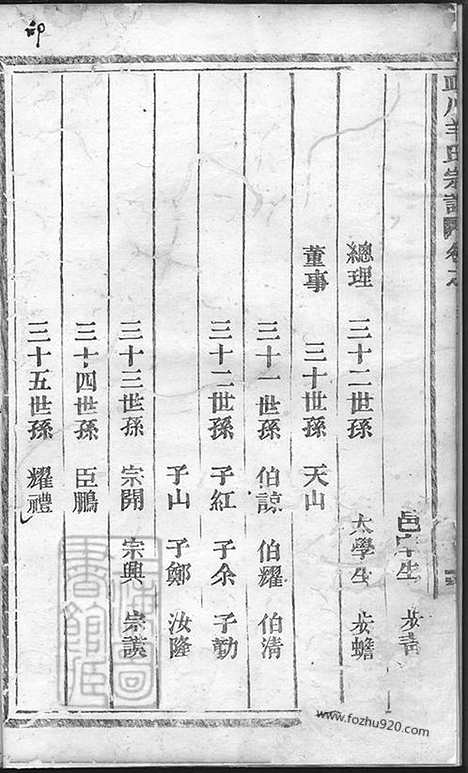 邑庠生 步青
總理 三十二世孫 太學生 步蟾
董事 三十世孫 天山
三十一世孫 伯諒 伯耀 伯清
三十二世孫 子紅 子余 子勤
子山 子鄭 汝隆
三十三世孫 宗開 宗興 宗讃
三十四世孫 臣鵬
三十五世孫 耀禮
卯
www.fozhu920.com